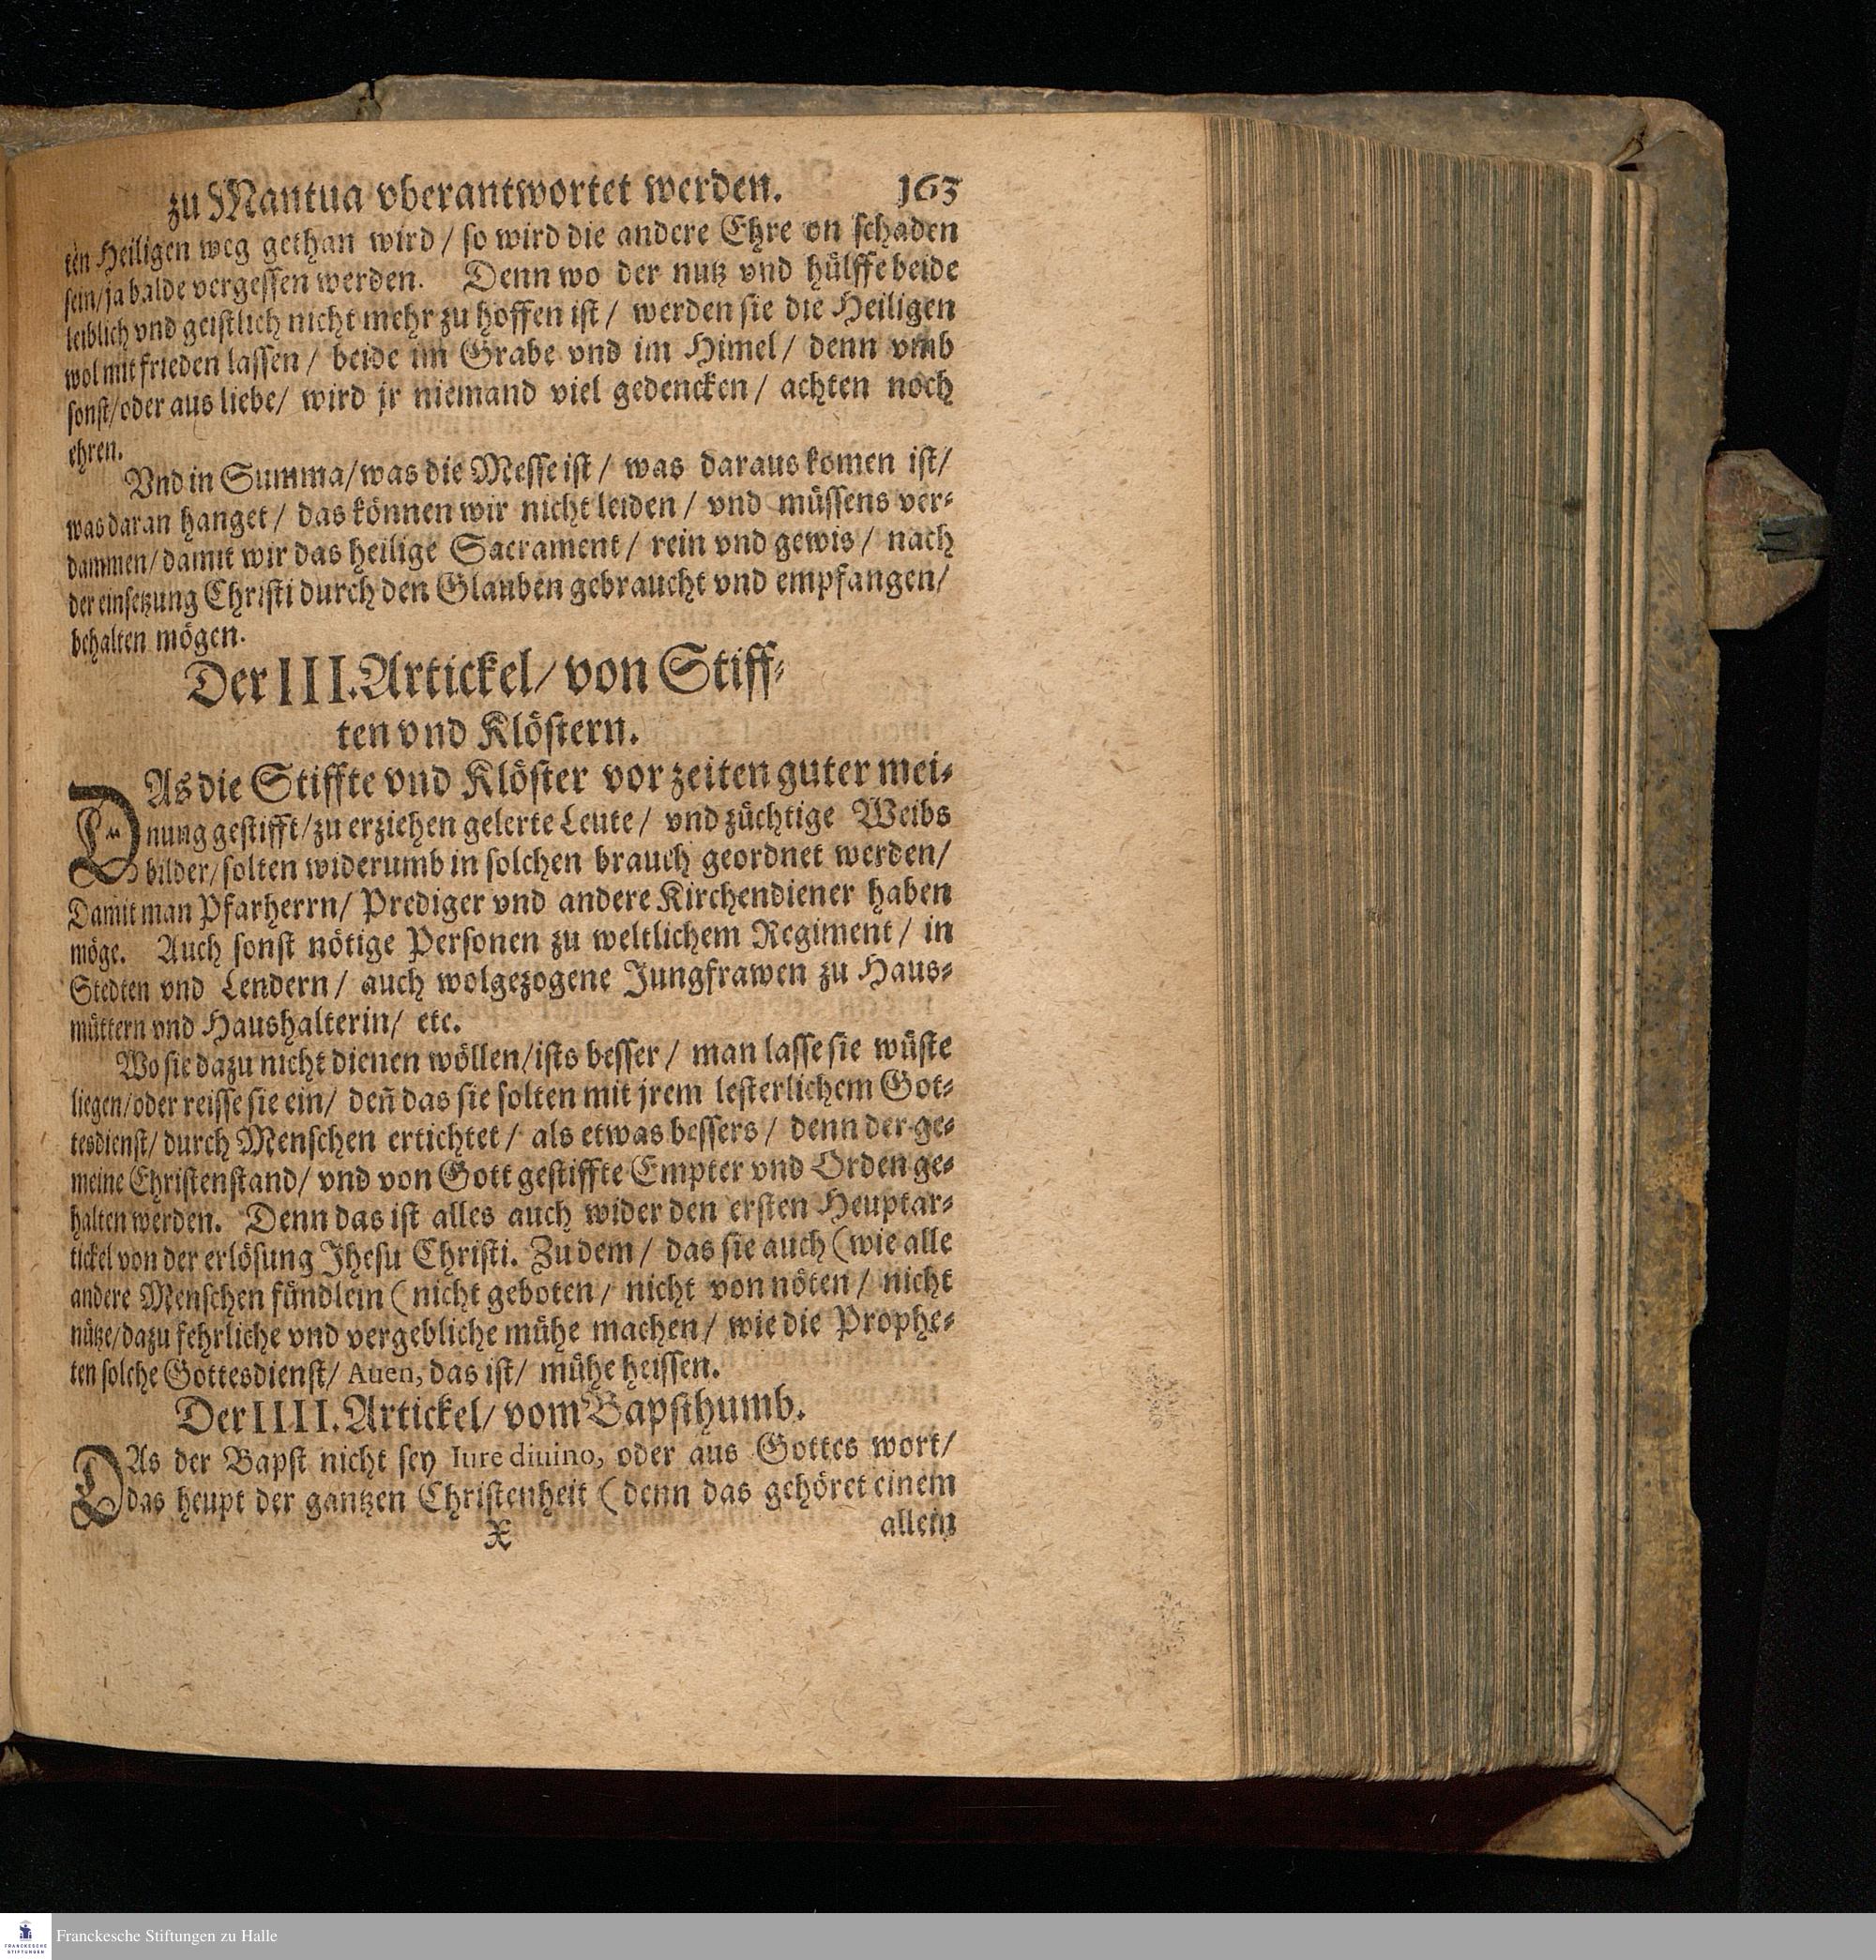 zu Mantua vberantwortet werden. 163
ten Heiligen weg gethan wird / so wird die andere Ehre on schaden
sein/ ja balde vergessen werden. Denn wo der nutz vnd hülffe beide
leiblich vnd geistlich nicht mehr zu hoffen ist / werden sie die Heiligen
wol mit frieden lassen / beide im Grabe vnd im Himel / denn vmb
sonst/ oder aus liebe/ wird jr niemand viel gedencken / achten noch
ehren.
Vnd in Summa/ was die Messe ist / was daraus komen ist/
was daran hanget / das können wir nicht leiden / vnd müssens ver-
dammen/ damit wir das heilige Sacrament / rein vnd gewis / nach
der einsetzung Christi durch den Glauben gebraucht vnd empfangen/
behalten mögen.
Der III. Artickel/ von Stiff-
ten vnd Klöstern.
DAs die Stiffte vnd Klöster vor zeiten guter mei-
nung gestifft/ zu erziehen gelerte Leute / vnd züchtige Weibs
bilder/ solten widerumb in solchen brauch geordnet werden/
Damit man Pfarherrn/ Prediger vnd andere Kirchendiener haben
möge. Auch sonst nötige Personen zu weltlichem Regiment / in
Stedten vnd Lendern / auch wolgezogene Jungfrawen zu Haus-
müttern vnd Haushalterin/ etc.
Wo sie dazu nicht dienen wöllen/ ists besser / man lasse sie wüste
liegen/ oder reisse sie ein/ deñ das sie solten mit jrem lesterlichem Got-
tesdienst/ durch Menschen ertichtet / als etwas bessers / denn der ge-
meine Christenstand/ vnd von Gott gestiffte Empter vnd Orden ge-
halten werden. Denn das ist alles auch wider den ersten Heuptar-
tickel von der erlösung Jhesu Christi. Zu dem / das sie auch (wie alle
andere Menschen fündlein ( nicht geboten / nicht von nöten / nicht
nütze/ dazu fehrliche vnd vergebliche mühe machen / wie die Prophe-
ten solche Gottesdienst/ Auen, das ist/ mühe heissen.
Der IIII. Artickel/ vom Bapsthumb.
DAs der Bapst nicht sey Iure diuino, oder aus Gottes wort/
das heupt der gantzen Christenheit ( denn das gehöret einem
X allein
FRANCKESCHE
STIFTUNGEN
Franckesche Stiftungen zu Halle